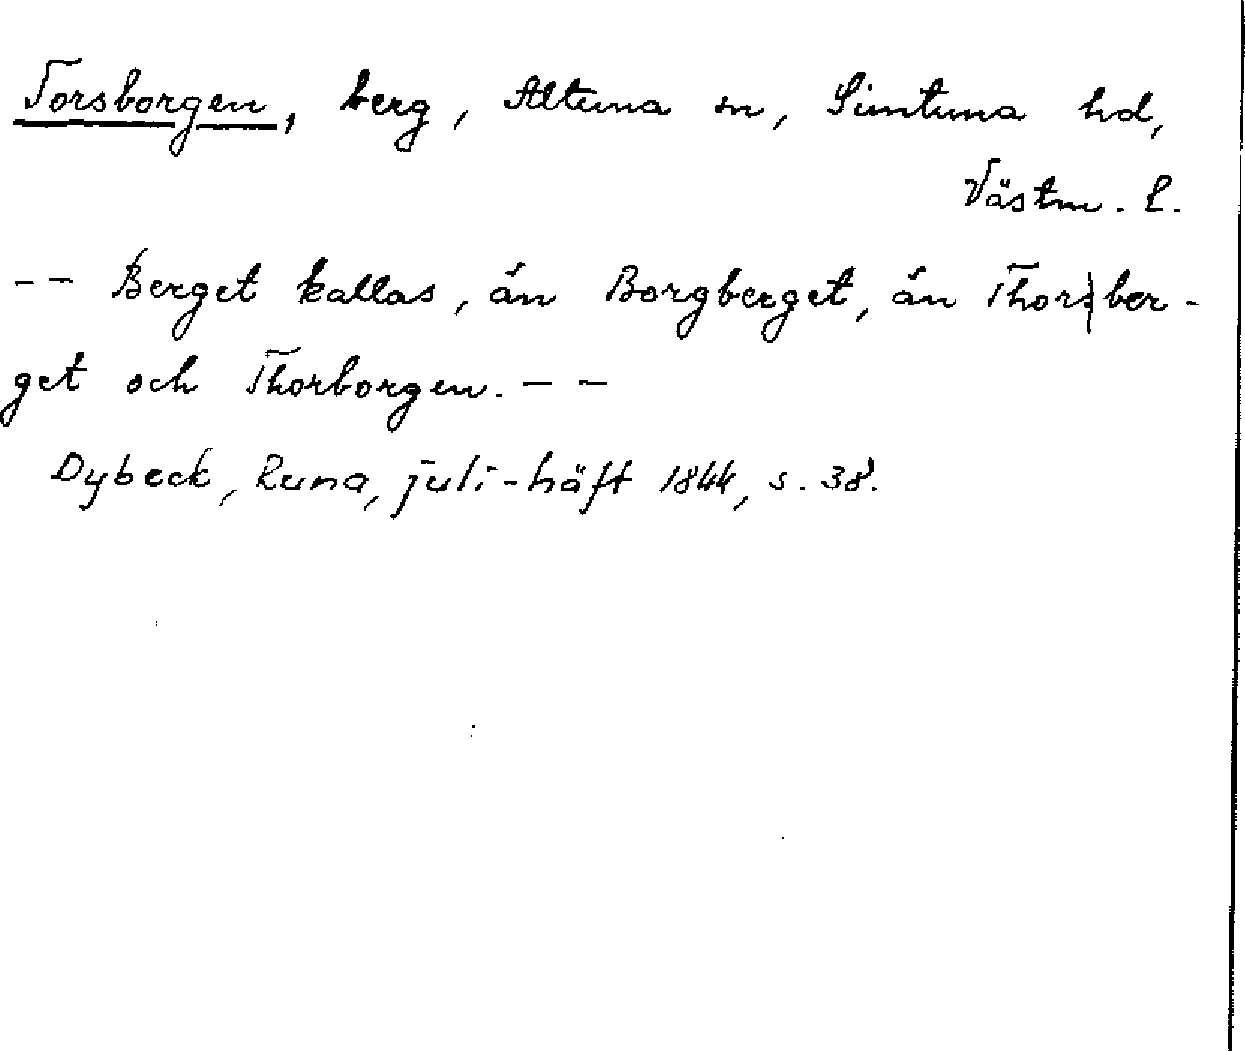 Torsborgen, berg, Altuna sn, Simtuna hd,
Västm. l.
-- Berget kallas, än Borgberget, än Thorsber-
get och Thorborgen. --
Dybeck, Runa, juli-häft 1844, s. 38.